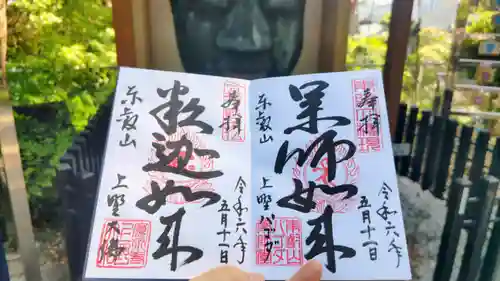 奉拝
令和六年
五月十一日
薬師如来
東叡山
上野パゴダ
奉拝
令和六年
五月十一日
釈迦如来
東叡山
上野大佛